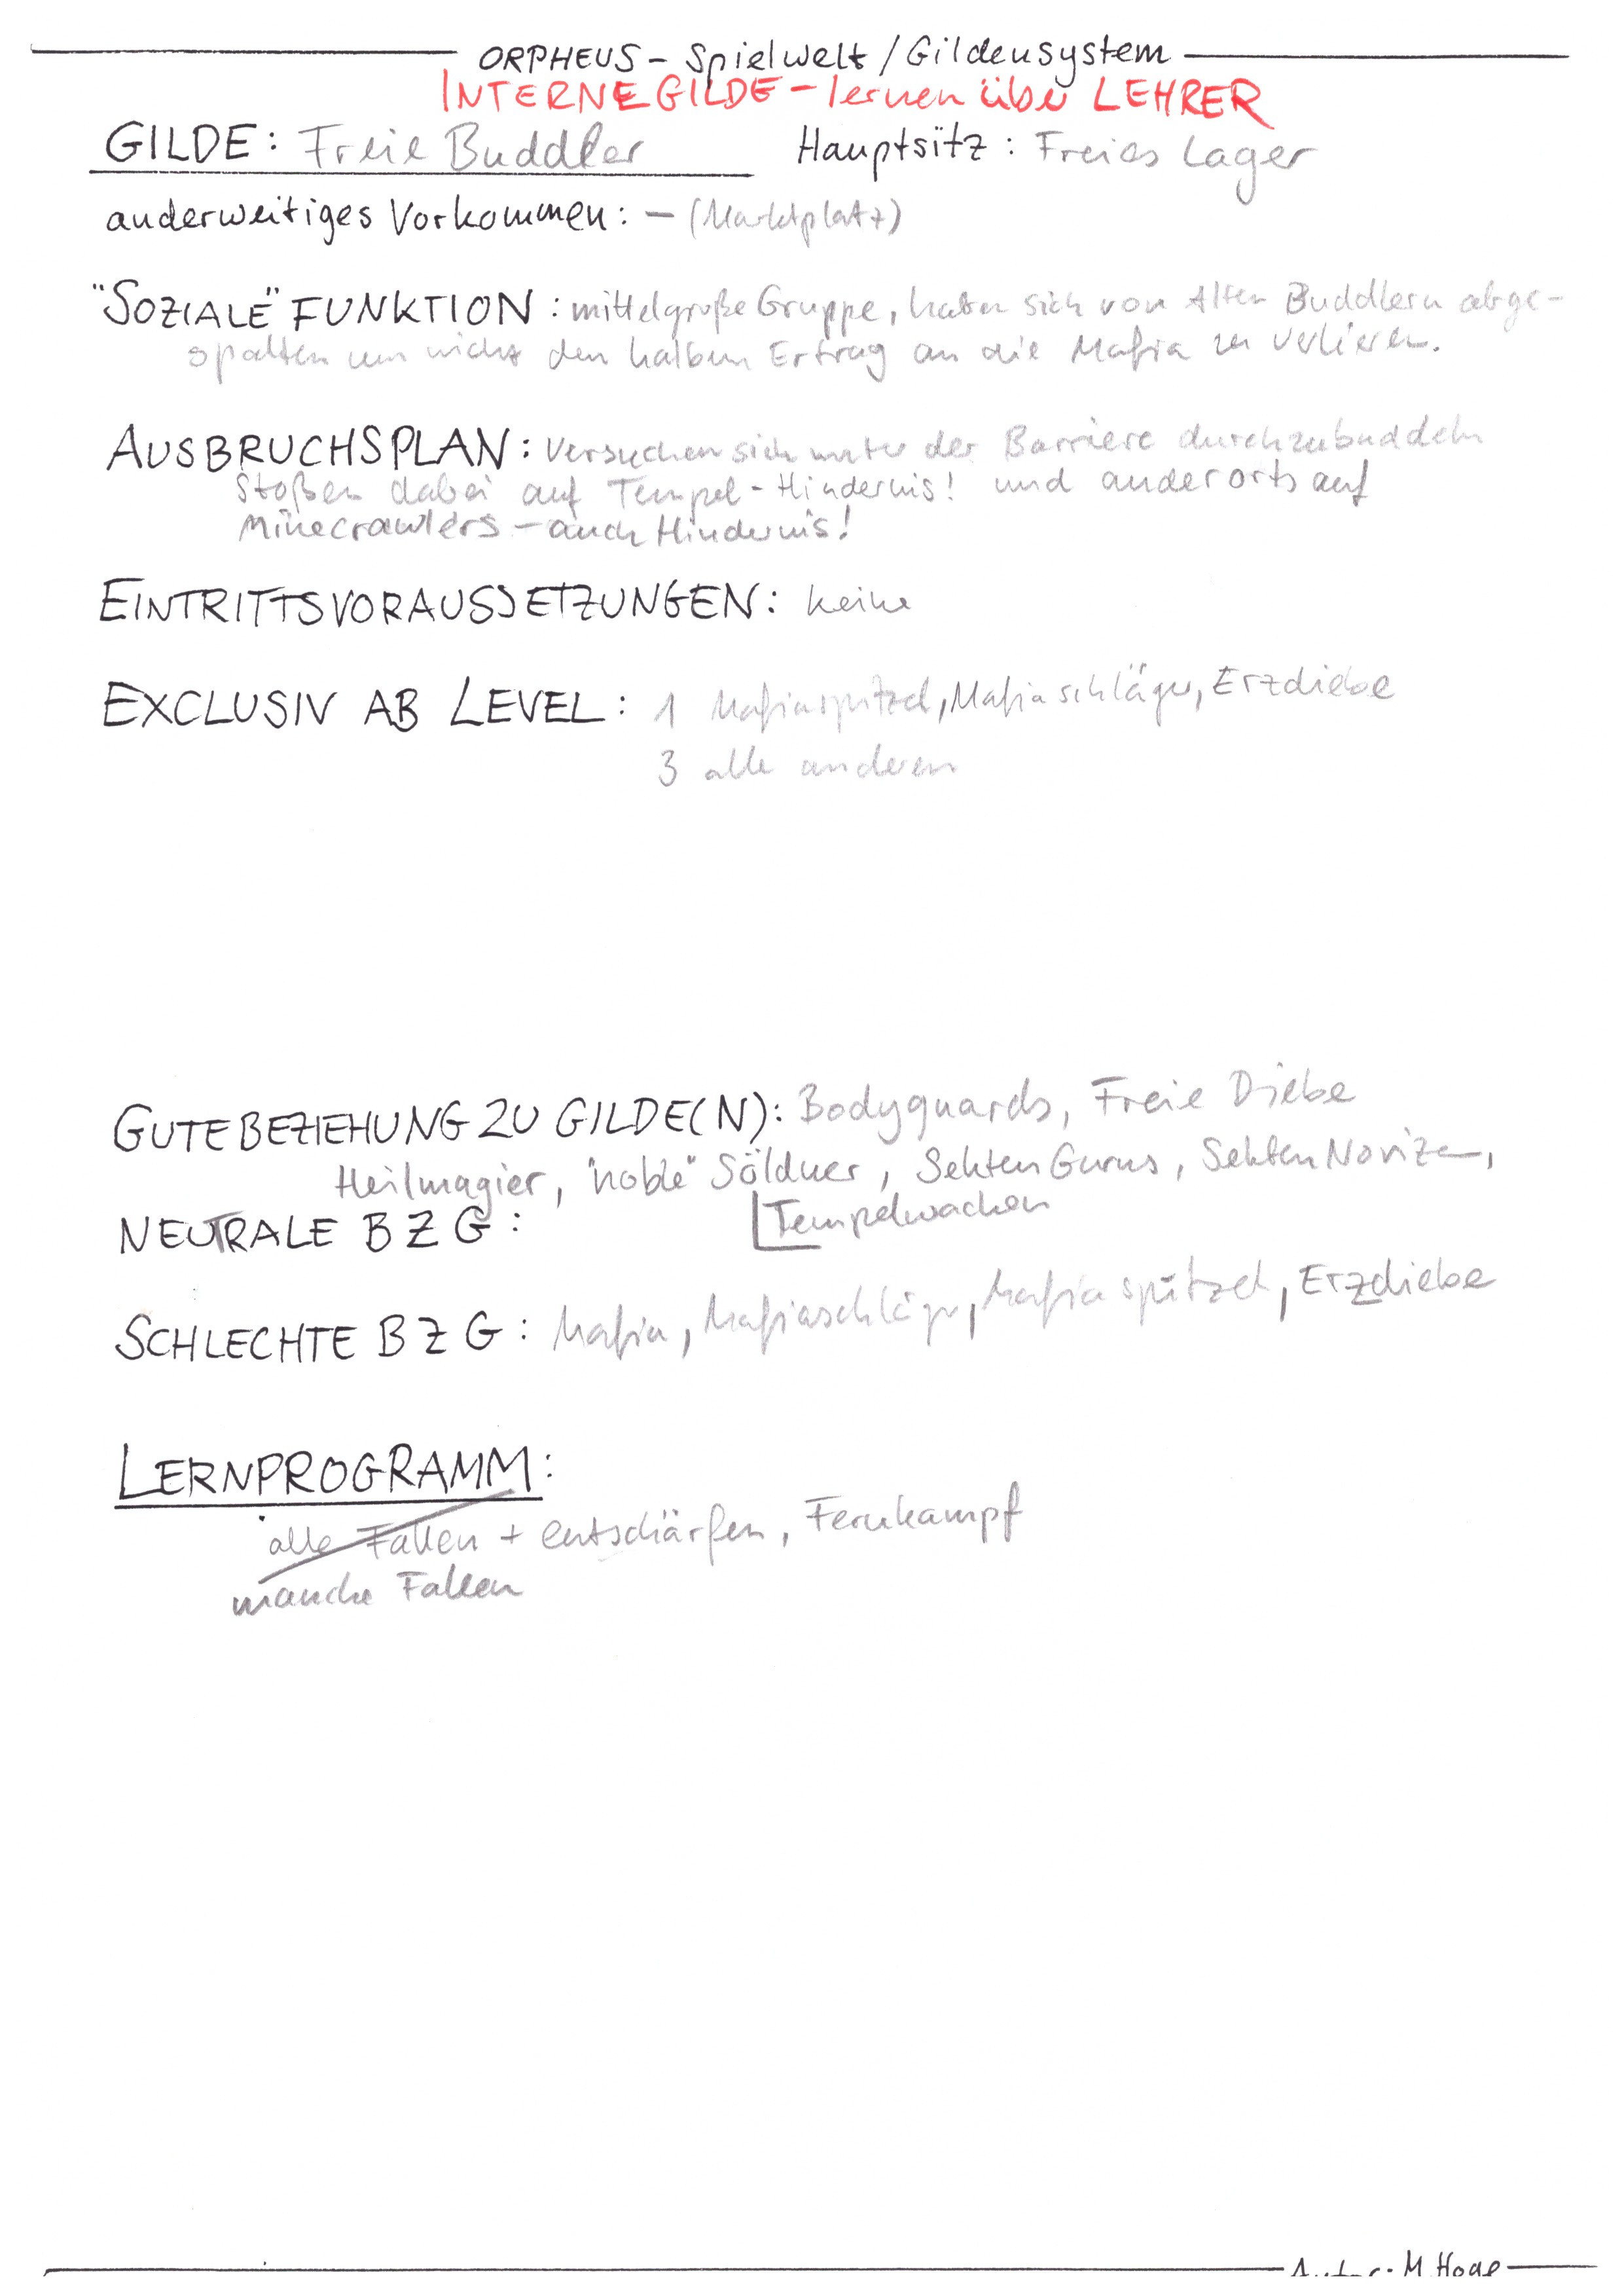 ORPHEUS - Spielwelt / Gildensystem
INTERNE GILDE - lernen über LEHRER
GILDE: Freie Buddler Hauptsitz: Freies Lager
anderweitiges Vorkommen: - (Marktplatz)
"SOZIALE" FUNKTION: mittelgroße Gruppe, haben sich von Alten Buddlern abge-
spalten um nicht den halben Ertrag an die Mafia zu verlieren.
AUSBRUCHSPLAN: Versuchen sich unter der Barriere durchzubuddeln
Stoßen dabei auf Tempel - Hindernis! und anderorts auf
Minecrawlers - auch Hindernis!
EINTRITTSVORAUSSETZUNGEN: keine
EXCLUSIV AB LEVEL: 1 Mafiaspitzel, Mafiaschläger, Erzdiebe
3 alle anderen
GUTE BEZIEHUNG ZU GILDE(N): Bodyguards, Freie Diebe
Heilmagier, "noble" Söldner, Sekten Gurus, Sekten Novizen,
Tempelwachen
NEUTRALE B Z G:
SCHLECHTE B Z G: Mafia, Mafiaschläger, Mafiaspitzel, Erzdiebe
LERNPROGRAMM:
alle Fallen + entschärfen, Fernkampf
manche Fallen
Autor: M. Hoge